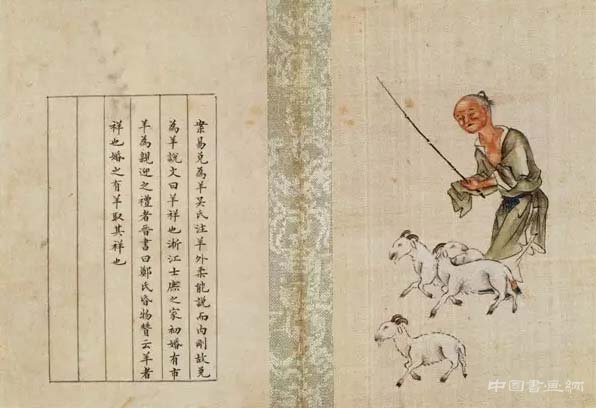 案易兑為羊吴氏注羊外柔能說而内剛故兑
為羊說文曰羊祥也浙江士庶之家初婚有市
羊為親迎之禮者晉書曰鄭氏昏物贊云羊者
祥也婚之有羊取其祥也
中国書画網